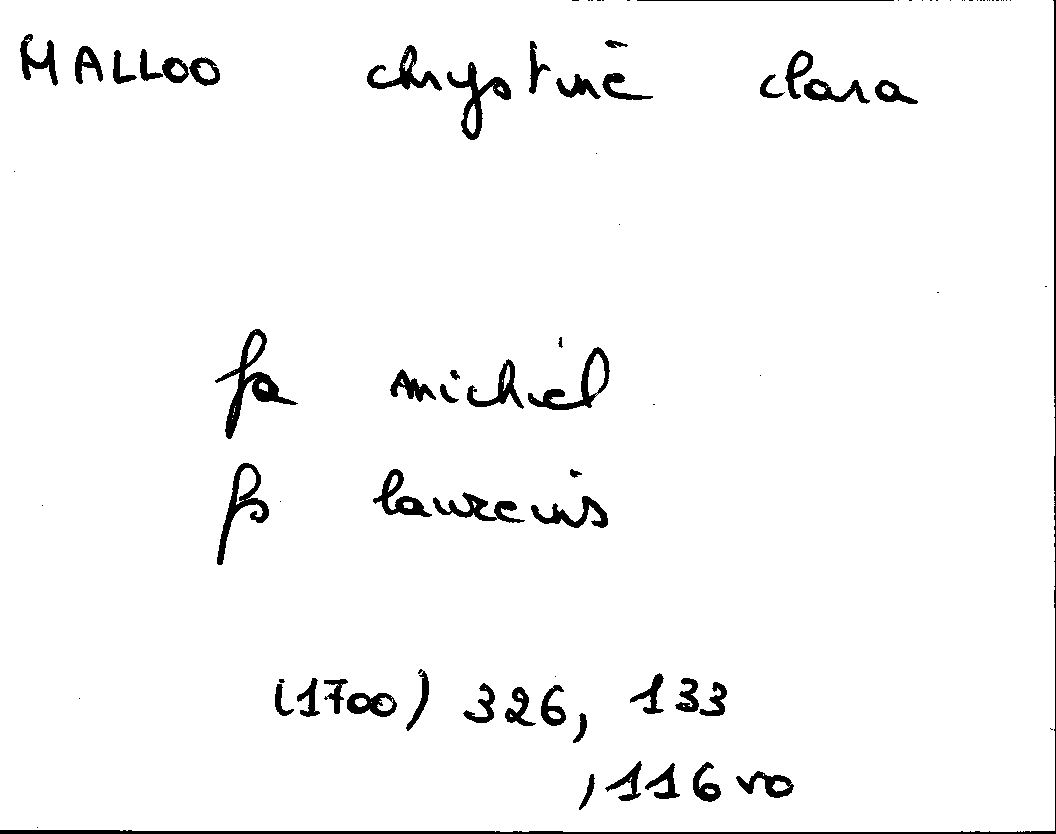 MALLOO chrystine clara
fa michiel
fs laureins
(1700) 326, 133
, 116 vo